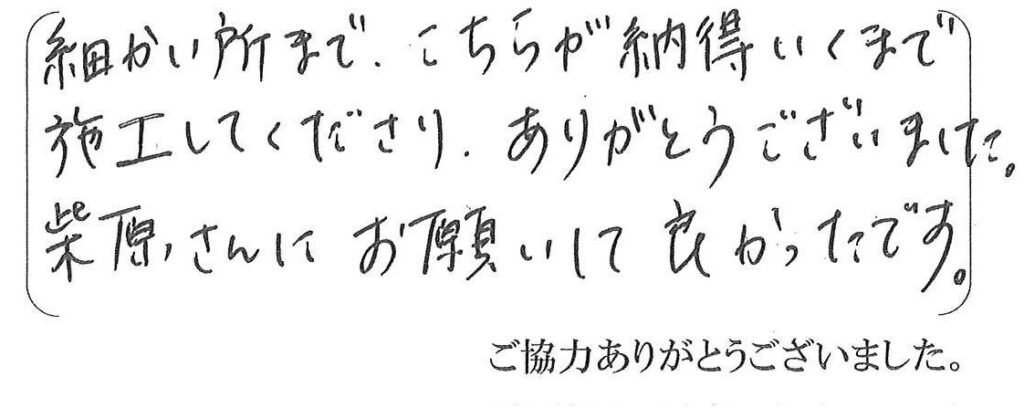 細かい所まで、こちらが納得いくまで
施工してくださり、ありがとうございました。
柴原さんにお願いして良かったです。
ご協力ありがとうございました。